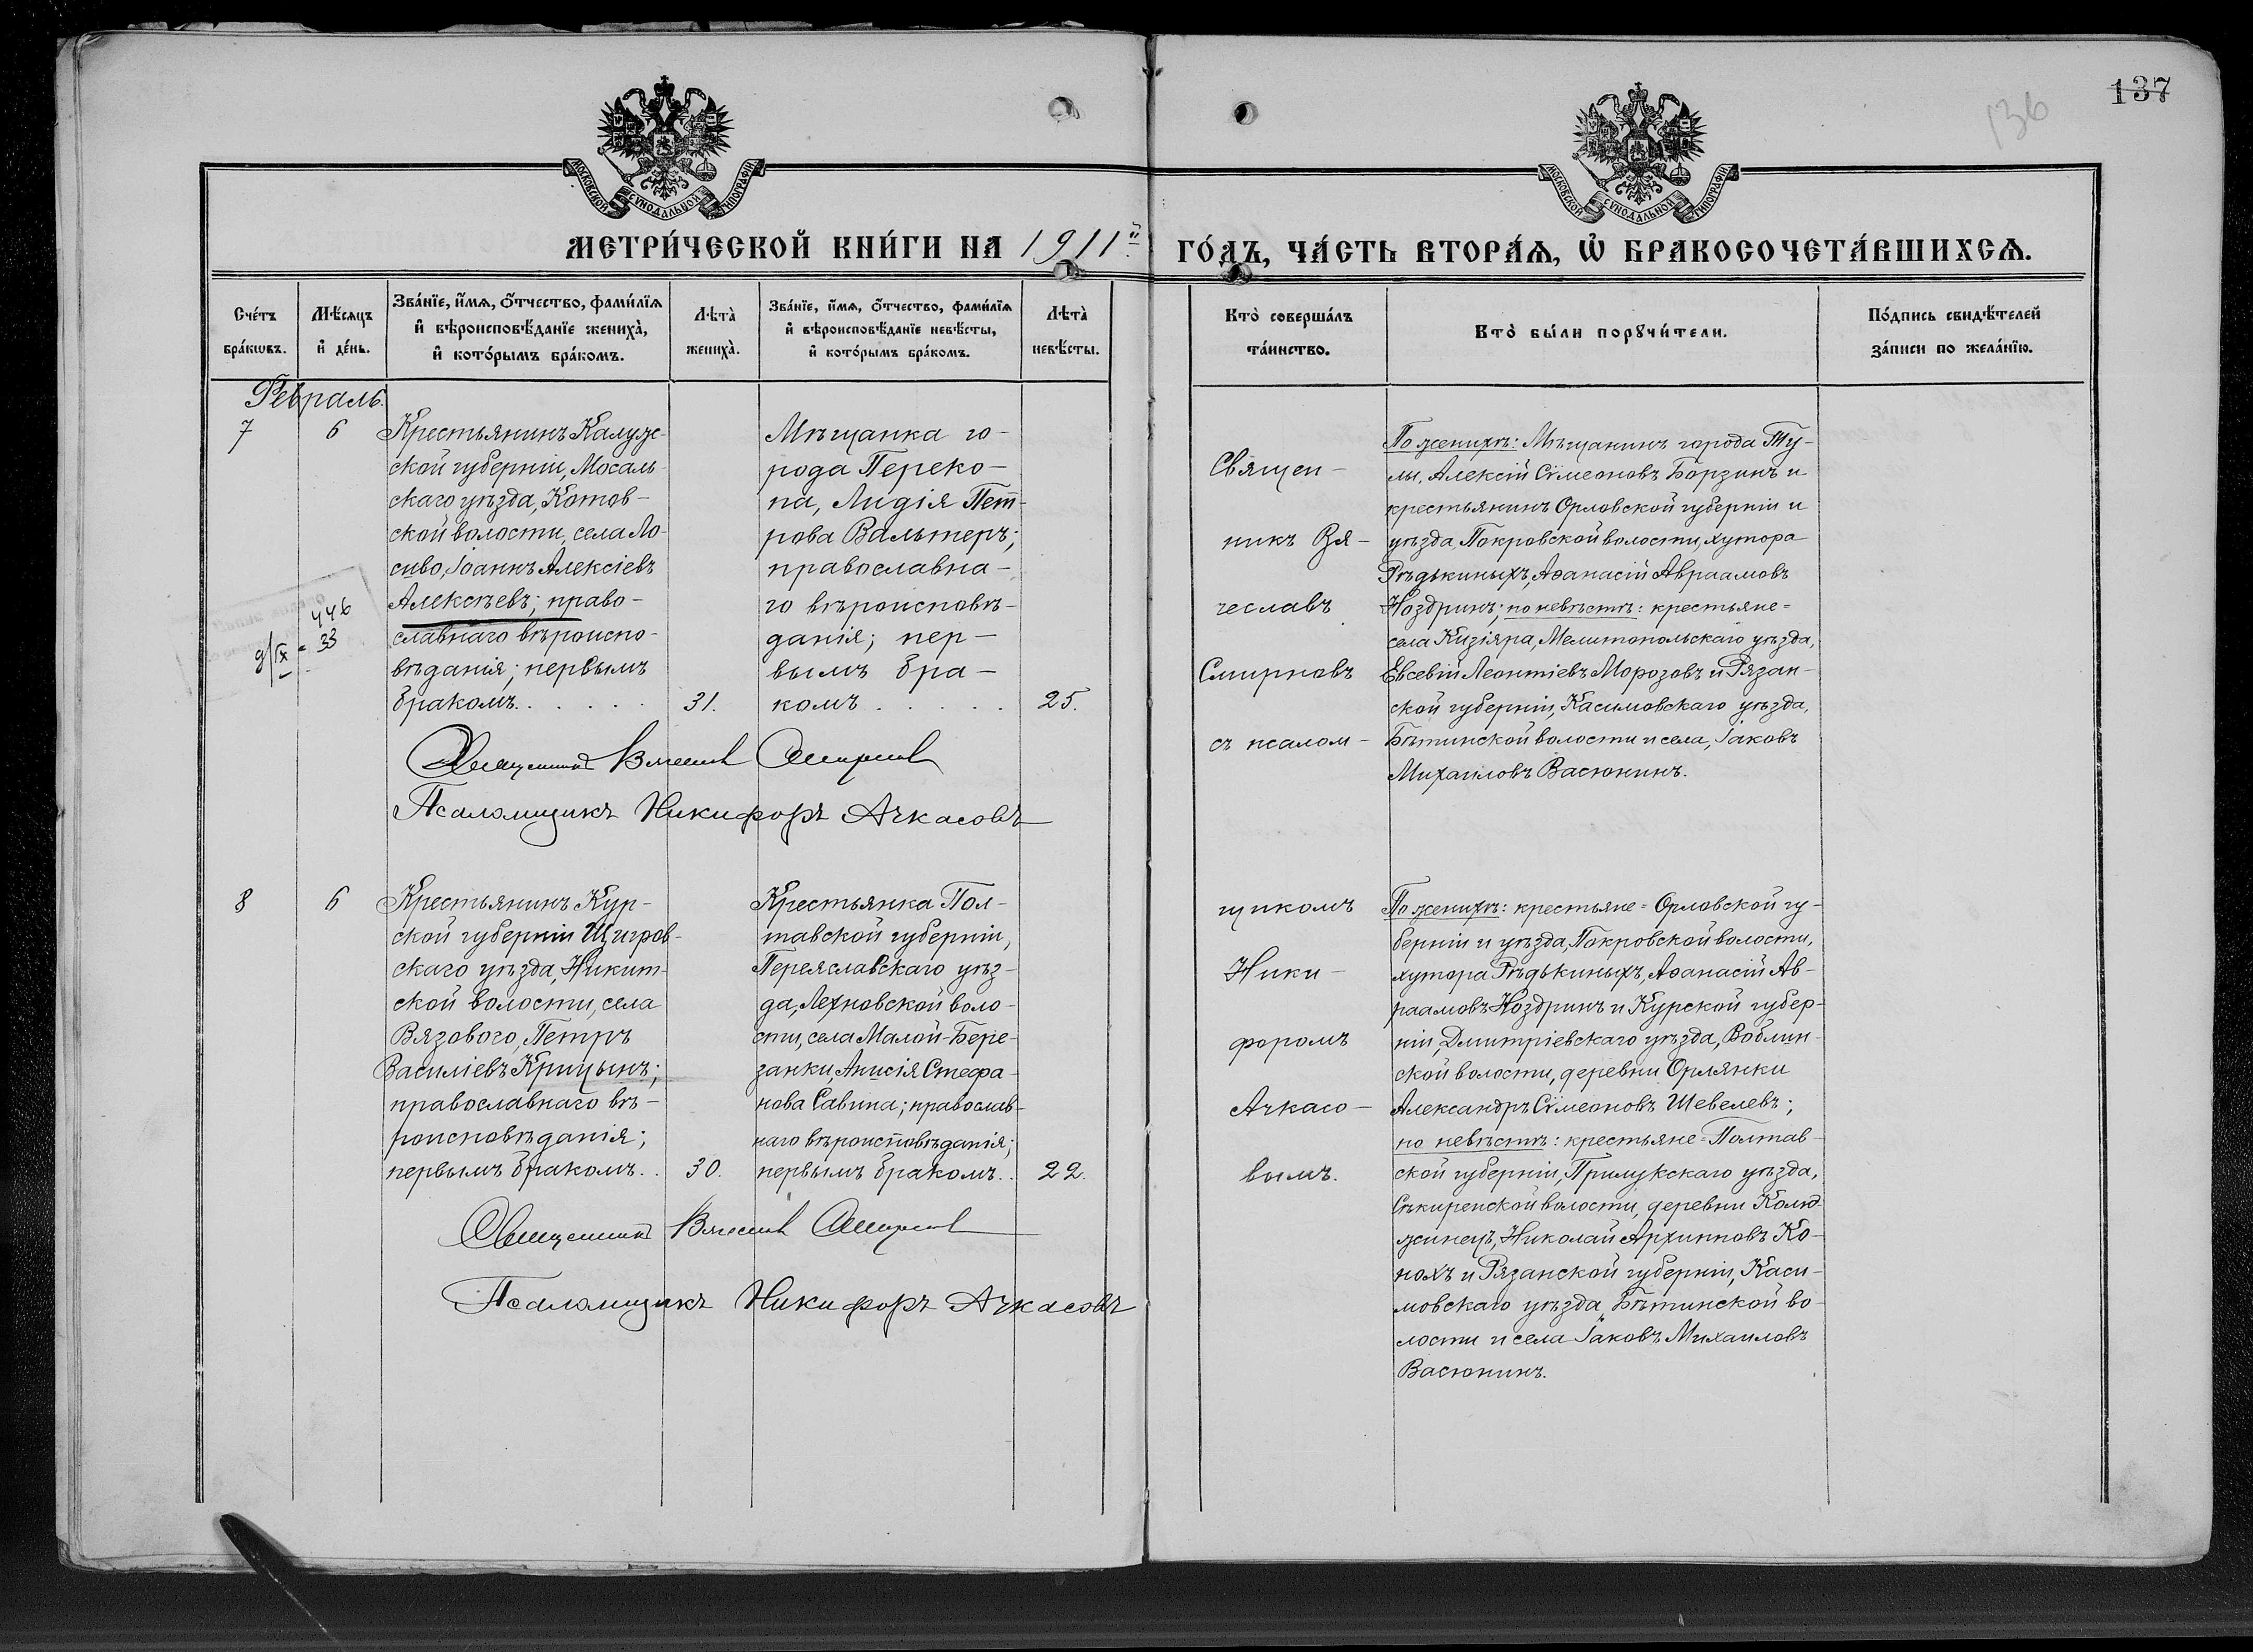 137
136
МОСКОВСКОЙ СУНОДАЛЬНОЙ ТИПОГРАФІИ
МОСКОВСКОЙ СУНОДАЛЬНОЙ ТИПОГРАФІИ
МЕТРИ́ЧЕСКОЙ КНИ́ГИ НА 1911й ГО́ДЪ, ЧА́СТЬ ВТОРА́Я, Ѡ҆ БРАКОСОЧЕТА́ВШИХСЯ.
Сче́тъ
бра́кѡвъ.
Мѣ́сяцъ
и҆ де́нь.
Зва́нїе, и҆́мя, ѻ҆́тчество, фами́лїя
и҆ вѣроисповѣ́данїе жениха̀,
и҆ кото́рымъ бра́комъ.
Лѣта̀
жениха̀.
Зва́нїе, и҆́мя, ѻ҆́тчество, фами́лїя
и҆ вѣроисповѣ́данїе невѣ́сты,
и҆ кото́рымъ бра́комъ.
Лѣта̀
невѣ́сты.
Кто̀ соверша́лъ
та́инство.
Кто̀ бы́ли порꙋчи́тели.
По́дпись свидѣ́телей
за́писи по жела́нїю.
Февраль.
7
6
Крестьянинъ Калуж-
ской губерніи, Мосаль-
скаго уѣзда, Котов-
ской волости, села Ло-
сиво, Іоаннъ Алексіевъ
Алексѣевъ; право-
славнаго вѣроиспо-
вѣданія; первымъ
бракомъ. . . . . .
446
33
31.
Мѣщанка го-
рода Переко-
па, Лидія Пет-
рова Вальтеръ;
православна-
го вѣроисповѣ-
данія; пер-
вымъ бра-
комъ . . . . .
25.
Священникъ Вячеславъ Смирновъ
Псаломщикъ Никифоръ Ачкасовъ
Священ-
никъ Вя-
чеславъ
Смирновъ
съ псалом-
По женихѣ: Мѣщанинъ города Ту-
лы, Алексій Сѵмеоновъ Борзинъ и
крестьянинъ Орловской губерніи и
уѣзда, Покровской волости, хутора
Рѣдькиныхъ, Аѳанасій Авраамовъ
Ноздринъ; по невѣстѣ: крестьяне=
села Кизіяра, Мелитопольскаго уѣзда,
Евсевій Леонтіевъ Морозовъ и Рязан-
ской губерніи, Касимовскаго уѣзда,
Бѣтинской волости и села, Іаковъ
Михаиловъ Васюнинъ.
8
6
Крестьянинъ Кур-
ской губерніи Щигров-
скаго уѣзда, Никит-
ской волости, села
Вязового, Петръ
Василіевъ Крицынъ;
православнаго вѣ-
роисповѣданія;
первымъ бракомъ. .
30.
Крестьянка Пол-
тавской губерніи,
Переяславскаго уѣз-
да, Лехновской воло-
сти, села Малой-Бере-
занки, Анисія Стефа-
нова Савина; православ-
наго вѣроисповѣданія;
первымъ бракомъ. .
22.
Священникъ Вячеславъ Смирновъ
Псаломщикъ Никифоръ Ачкасовъ
щикомъ
Ники-
форомъ
Ачкасо-
вымъ.
По женихѣ: крестьяне= Орловской гу-
берніи и уѣзда, Покровской волости,
хутора Рѣдькиныхъ, Аѳанасій Ав-
раамовъ Ноздринъ и Курской губер-
ніи, Дмитріевскаго уѣзда, Воблин-
ской волости, деревни Орлянки
Александръ Сѵмеоновъ Шевелевъ;
по невѣстѣ: крестьяне= Полтав-
ской губерніи, Прилукскаго уѣзда,
Сѣкиренской волости, деревни Колюд-
жинецъ, Николай Архипповъ Ко-
нохъ и Рязанской губерніи, Каси-
мовскаго уѣзда, Бѣтинской во-
лости и села Іаковъ Михаиловъ
Васюнинъ.